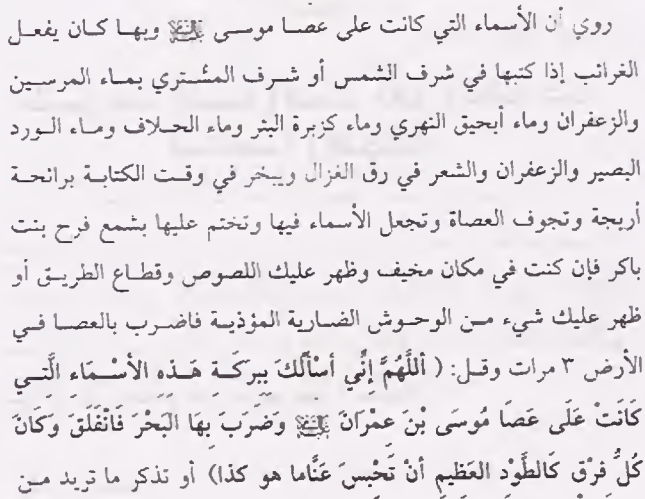 روي أن الأسماء التي كانت على عصا موسى ﷺ وبها كان يفعل
الغرائب إذا كتبها في شرف الشمس أو شرف المشتري بماء المرسين
والزعفران وماء أبحيق النهري وماء كزبرة البئر وماء الحلاف وماء الورد
البصير والزعفران والشعر في رق الغزال ويبخر في وقت الكتابة برائحة
أريجة وتجوف العصاة وتجعل الأسماء فيها وتختم عليها بشمع فرح بنت
باكر فإن كنت في مكان مخيف وظهر عليك اللصوص وقطاع الطريق أو
ظهر عليك شيء من الوحوش الضارية المؤذية فاضرب بالعصا في
الأرض ٣ مرات وقل: (أَللَّهُمَّ إِنِّي أسْأَلُكَ بِبَرَكَةِ هَذِهِ الأسْمَاءِ الَّتِي
كَانَتْ عَلَى عَصَا مُوسَى بْنَ عمْرَانَ وَضَرَبَ بِهَا البَحْرَ فَانْفَلَقَ وَكَانَ
كُلُّ فِرْقٍ كَالطَّوْدِ العَظِيمِ أنْ تَحْبِسَ عَنَّاما هو كذا) أو تذكر ما تريد من